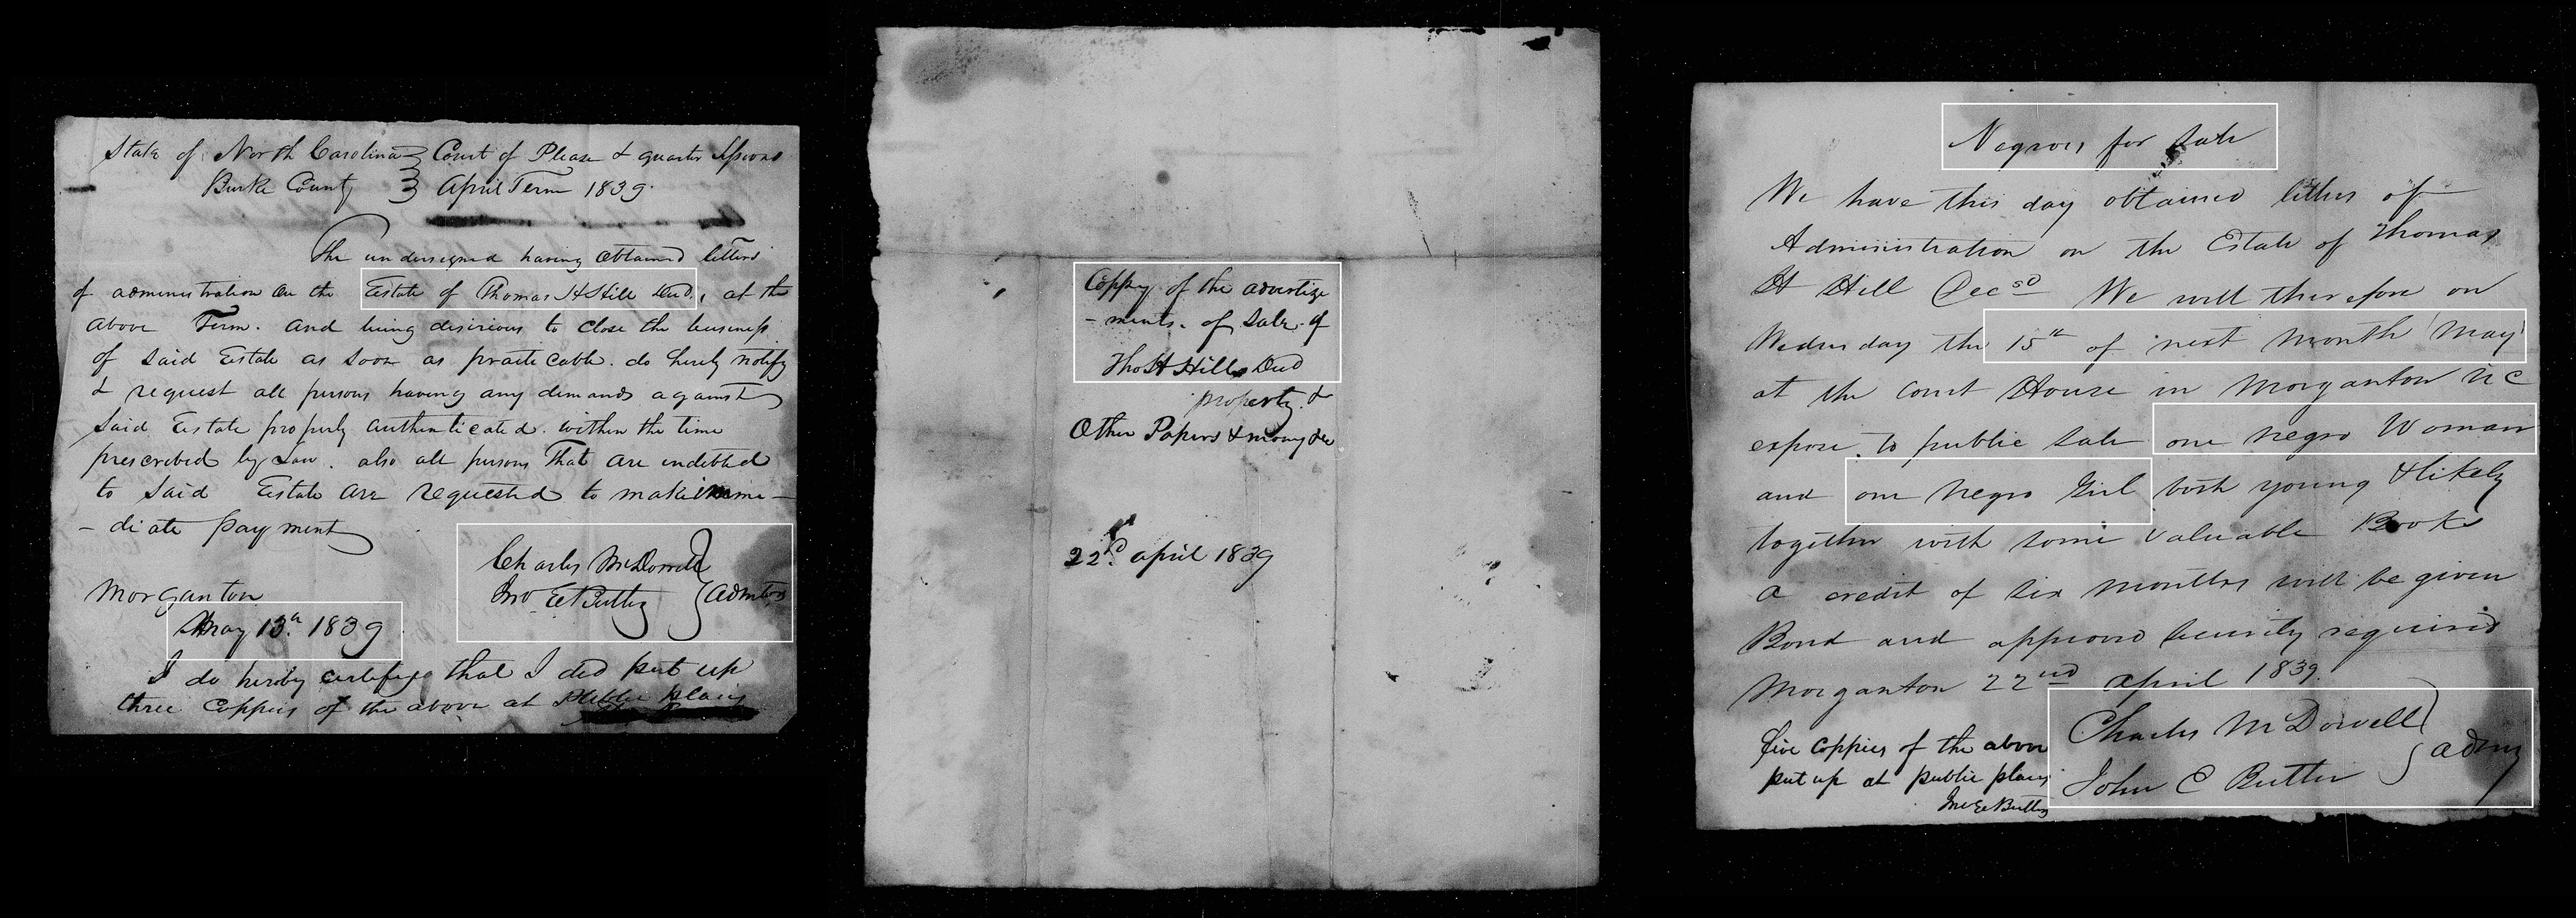 State of North Carolina } Court of Please & quarter Sessions
Burke County } April Term 1839.
The undersigned having obtained letters
of administration on the Estate of Thomas H Hill Decd, at the
above Term. and being desirious to close the business
of said Estate as soon as practicable. do hereby notify
& request all persons having any demands against
said Estate properly authenticated. within the time
prescribed by Law. also all persons that are indebted
to said Estate are requested to make imme-
-diate payment
Charles McDowell } admtors
Jno E Butler
Morganton
May 13th. 1839
I do hereby certifye that I did put up
three Coppies of the above at Publie plaices
Coppey of the advertize
-ments. of Sale. of
Tho H Hills Decd
property. &
Other Papers & money &c
22d. april 1839
Negroes for Sale
We have this day obtained letters of
Administration on the Estate of Thomas
H Hill Decsd We will therefore on
Wednesday the 15th of next month 'May'
at the Court House in Morganton NC
expose to public sale one negro Woman
and one negro Girl both young & likely
together with some valuable Books
A credit of six months will be given
Bond and approved security required
Morganton 22nd April 1839.
Charles McDowell } admrs
John E Butler
five coppies of the above
put up at public plaices
Jno E Butler